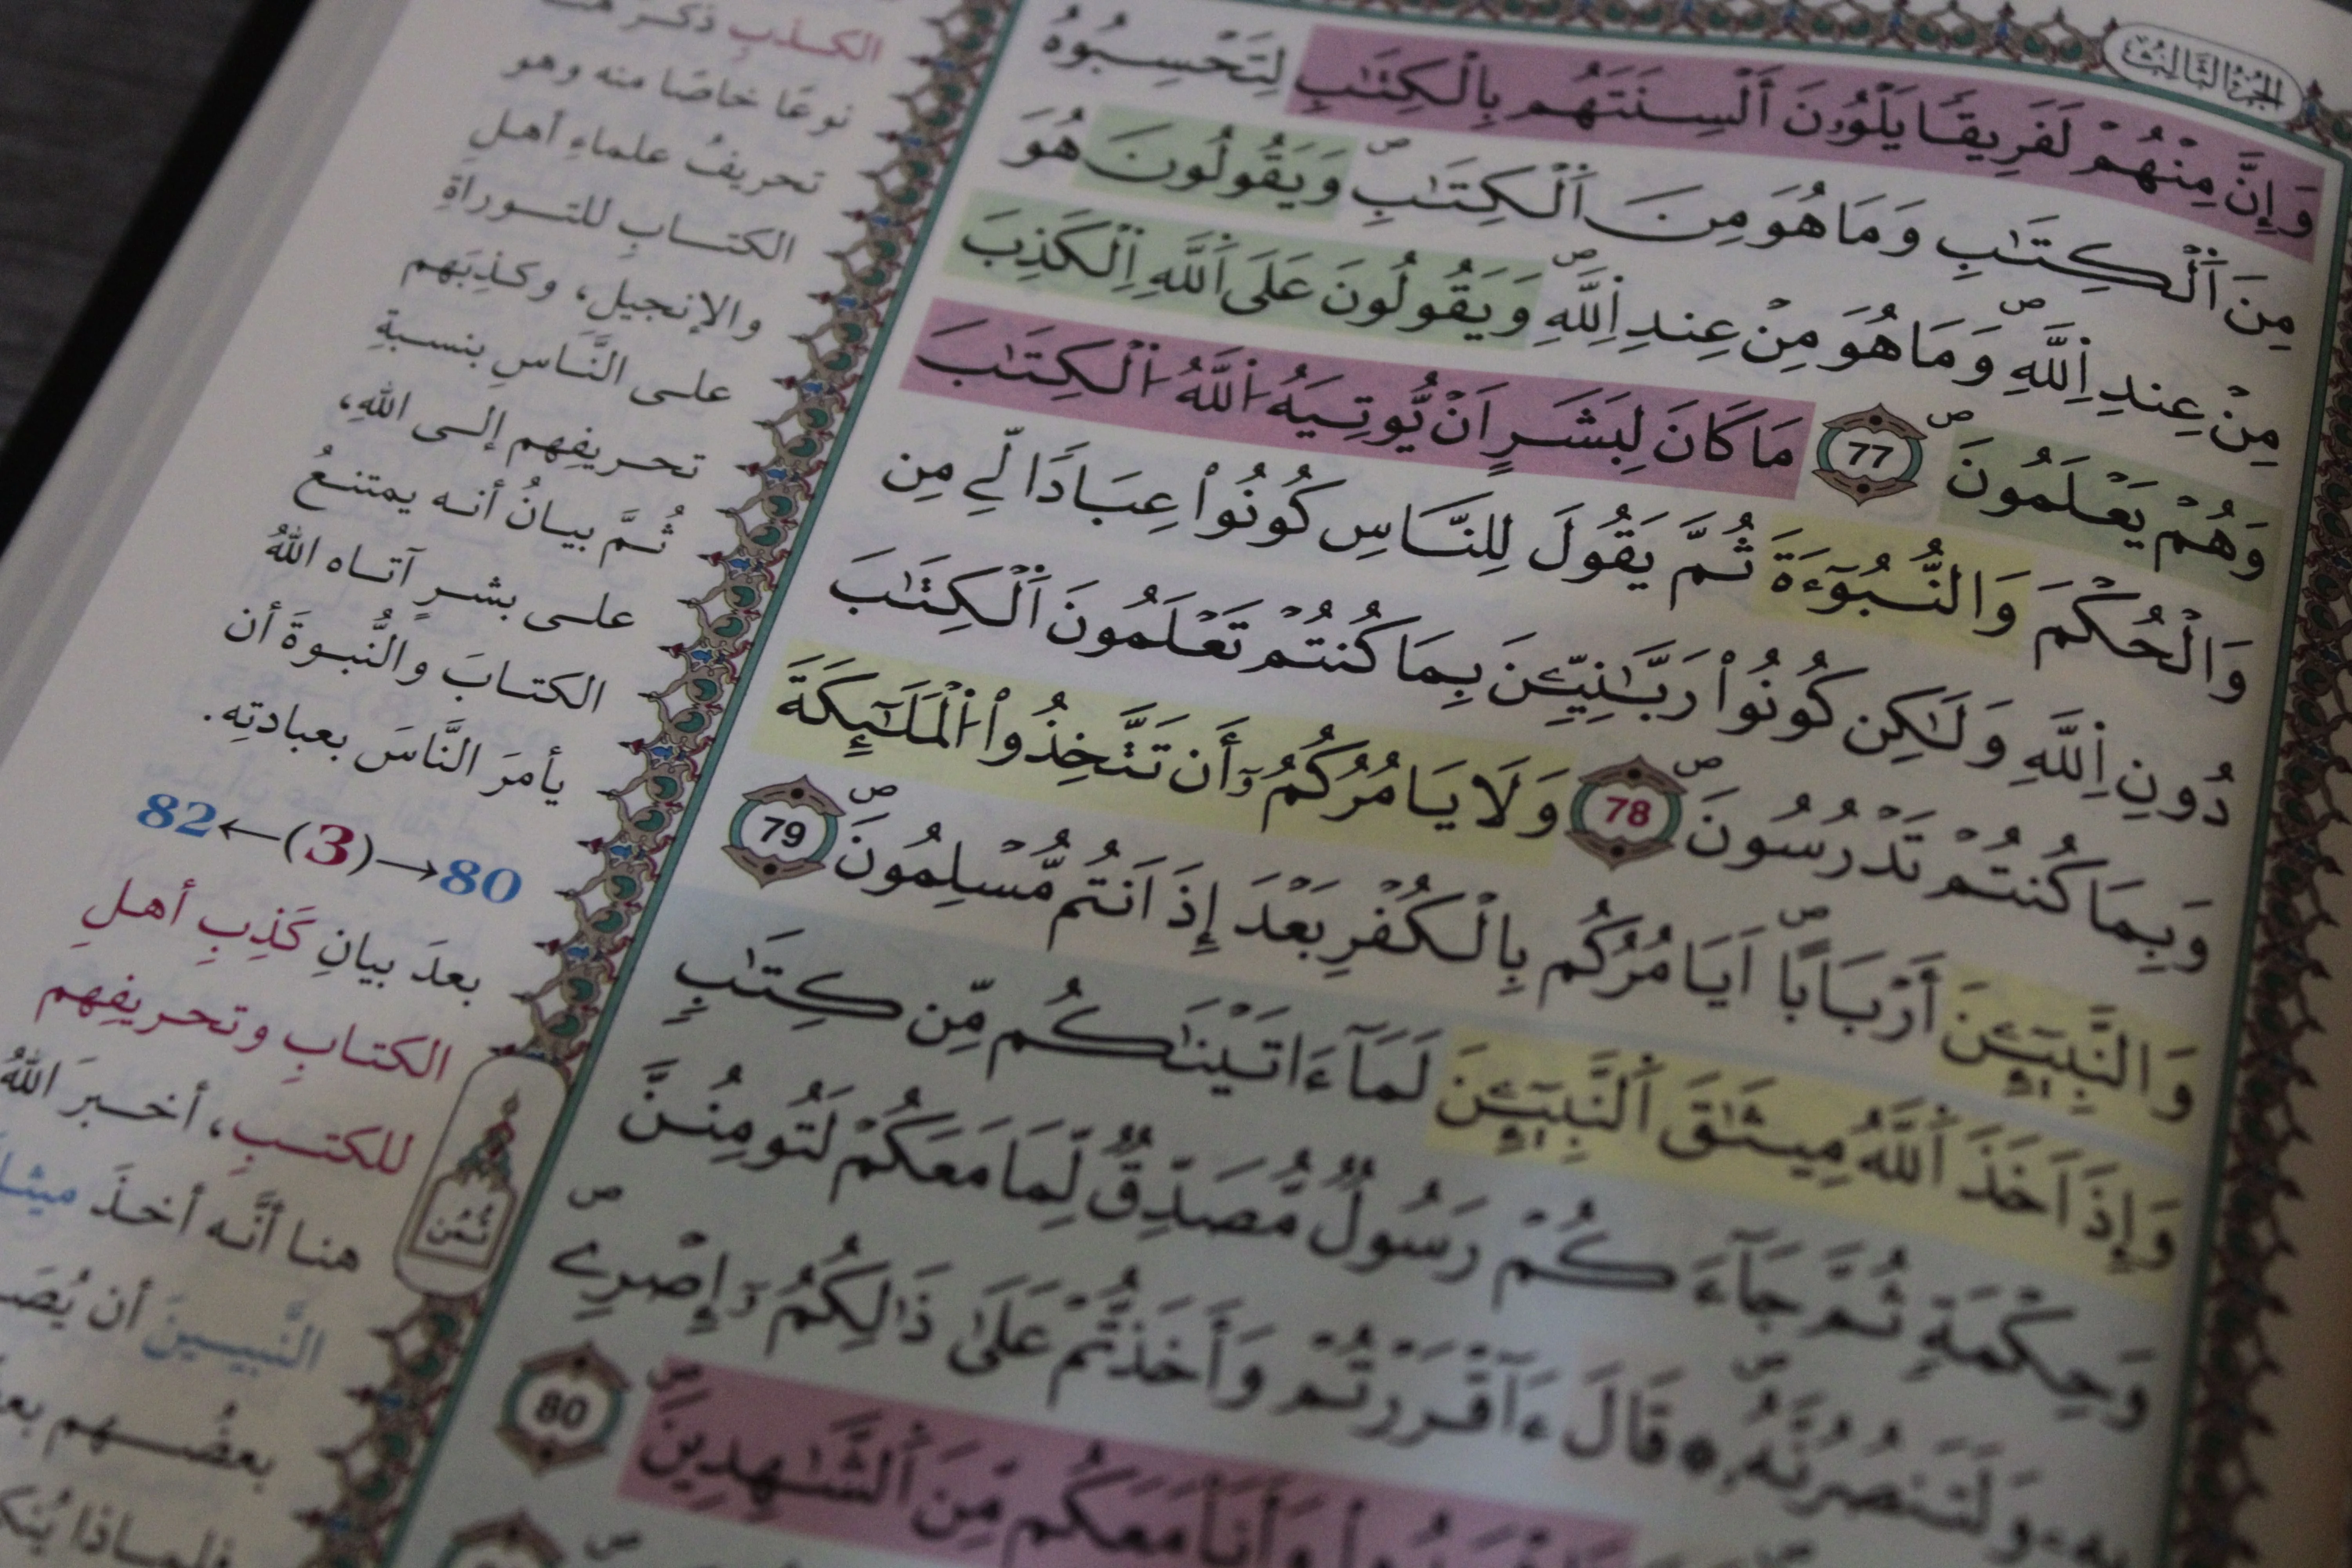 الجزء الثالث
وَإِنَّ مِنْهُمْ لَفَرِيقًا يَلْوُۥنَ أَلْسِنَتَهُم بِالْكِتَٰبِ لِتَحْسِبُوهُ
مِنَ اَ۬لْكِتَٰبِ وَمَا هُوَ مِنَ اَ۬لْكِتَٰبِۖ وَيَقُولُونَ هُوَ
مِنْ عِندِ اِ۬للَّهِۖ وَمَا هُوَ مِنْ عِندِ اِ۬للَّهِۖ وَيَقُولُونَ عَلَى اَ۬للَّهِ اِ۬لْكَذِبَ
وَهُمْ يَعْلَمُونَۖ 77 مَا كَانَ لِبَشَرٍ اَنْ يُّوتِيَهُ اُ۬للَّهُ اُ۬لْكِتَٰبَ
وَالْحُكْمَ وَالنُّبُوٓءَةَ ثُمَّ يَقُولَ لِلنَّاسِ كُونُوا۟ عِبَادًا لِّے مِن
دُونِ اِ۬للَّهِ وَلَٰكِن كُونُوا۟ رَبَّٰنِيِّـۧنَ بِمَا كُنتُمْ تَعْلَمُونَ اَ۬لْكِتَٰبَ
وَبِمَا كُنتُمْ تَدْرُسُونَۖ 78 وَلَا يَامُرُكُمُۥٓ أَن تَتَّخِذُوا۟ اُ۬لْمَلَٰٓئِكَةَ
وَالنَّبِيٓـِٕۧنَ أَرْبَابًاۖ اَيَامُرُكُم بِالْكُفْرِ بَعْدَ إِذَ اَنتُم مُّسْلِمُونَۖ 79
وَإِذَ اَخَذَ اَ۬للَّهُ مِيثَٰقَ اَ۬لنَّبِيٓـِٕۧنَ لَمَآ ءَاتَيْنَٰكُم مِّن كِتَٰبٍ
وَحِكْمَةٍ ثُمَّ جَآءَكُمْ رَسُولٌ مُّصَدِّقٌ لِّمَا مَعَكُمْ لَتُومِنُنَّ
بِهِۦ وَلَتَنصُرُنَّهُۥۖ قَالَ ءَآقْرَرْتُمْ وَأَخَذتُّمْ عَلَىٰ ذَٰلِكُمُۥٓ إِصْرِےۖ
وَأَنَا مَعَكُم مِّنَ اَ۬لشَّٰهِدِينَۖ 80
الكذبِ ذكر
نوعًا خاصًا منه وهو
تحريفُ علماءِ أهلِ
الكتابِ للتوراةِ
والإنجيل، وكذِبَهم
على النَّاسِ بنسبةِ
تحريفِهم إلى اللهِ،
ثُمَّ بيانُ أنه يمتنعُ
على بشرٍ آتاه اللهُ
الكتابَ والنُّبوةَ أن
يأمرَ النَّاسَ بعبادتِه.
82←(3)→80
بعدَ بيانِ كَذِبِ أهلِ
الكتابِ وتحريفِهم
للكتبِ، أخبرَ اللهُ
هنا أنَّه أخذَ
النَّبيينَ أن
بعضُهم
ثُمُن